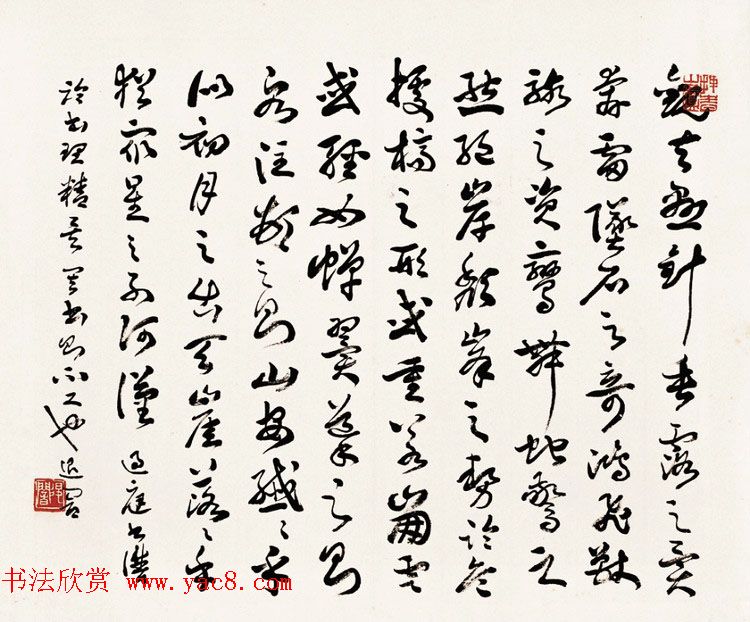 觀夫懸針垂露之異
奔雷墜石之奇鴻飛獸
駭之資鸞舞蛇驚之
態絕岸頹峰之勢臨危
據槁之形或重若崩雲
或輕如蟬翼導之則
泉注頓之則山安纖〻乎
似初月之出天崖落〻乎
猶衆星之列河漢 過庭書譜
書理精矣書則不工也
书法欣赏 www.yac8.com